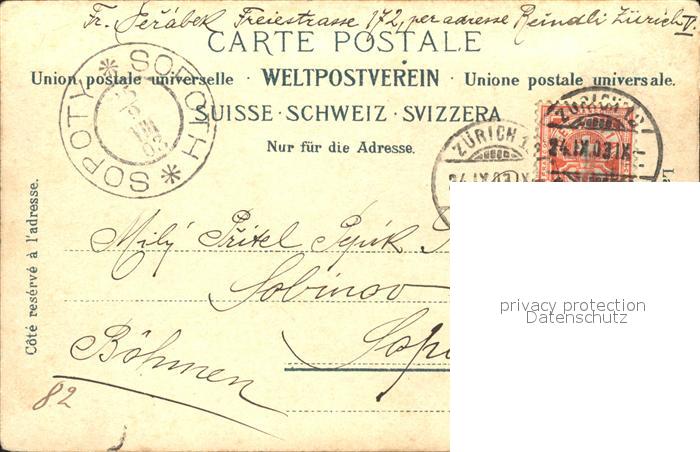 Fr. Jeřábek Freiestrasse 172, per adresse Reindli Zürich V.
CARTE POSTALE
Union postale universelle · WELTPOSTVEREIN · Unione postale universale.
SUISSE · SCHWEIZ · SVIZZERA
Nur für die Adresse.
SOPOTY * SOPOTH *
ZÜRICH 12
ZÜRICH 12
Côté resérvé à l'adresse.
Milý Přítel Pepík
Sobinov
Sop
Böhmen
82
privacy protection
Datenschutz